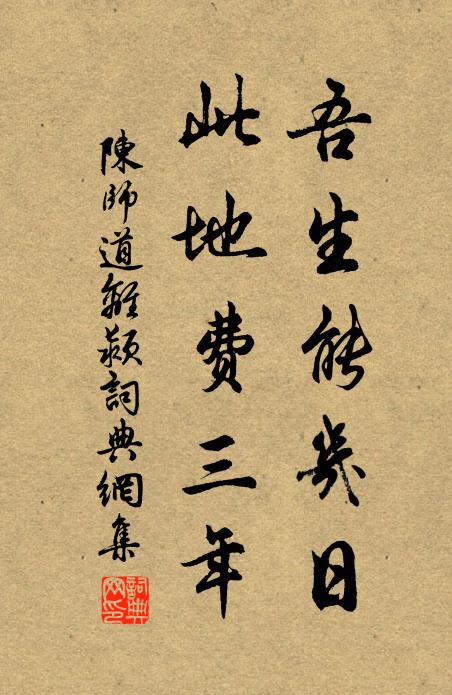 吾生能幾日
此地費三年
陳師道離潁詞典網集
詞典網印